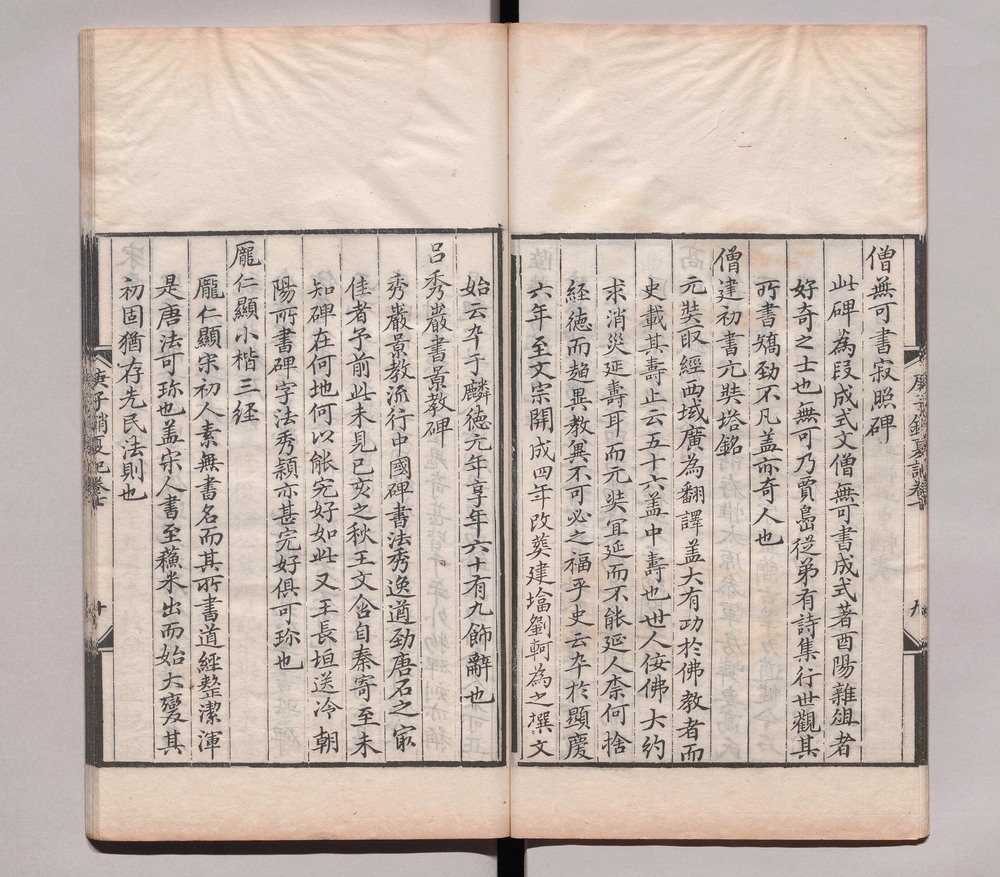 僧無可書寂照碑
此碑為段成式文僧無可書成式著酉陽雜俎者
好奇之士也無可乃賈島從弟有詩集行世觀其
所書矯勁不凡盖亦奇人也
僧建初書元奘塔銘
元奘取經西域廣為翻譯盖大有功於佛教者而
史載其壽止云五十六盖中壽也世人侫佛大約
求消災延壽耳而元奘宜延而不能延人柰何捨
経徳而趨異教兾不可必之福乎史云卒於顯慶
六年至文宗開成四年改葬建塔劉軻為之撰文
始云卒于麟徳元年享年六十有九飾辭也
吕秀巖書景教碑
秀巖景教流行中國碑書法秀逸遒勁唐石之㝡
佳者予前此未見已亥之秋王文含自秦寄至未
知碑在何地何以能完好如此又王長垣送冷朝
陽所書碑字法秀穎亦甚完好俱可珎也
龎仁顯小楷三経
龎仁顯宋初人素無書名而其所書道経整潔渾
是唐法可珎也盖宋人書至蘓米出而始大變其
初固猶存先民法則也
庚子銷夏記卷七
十